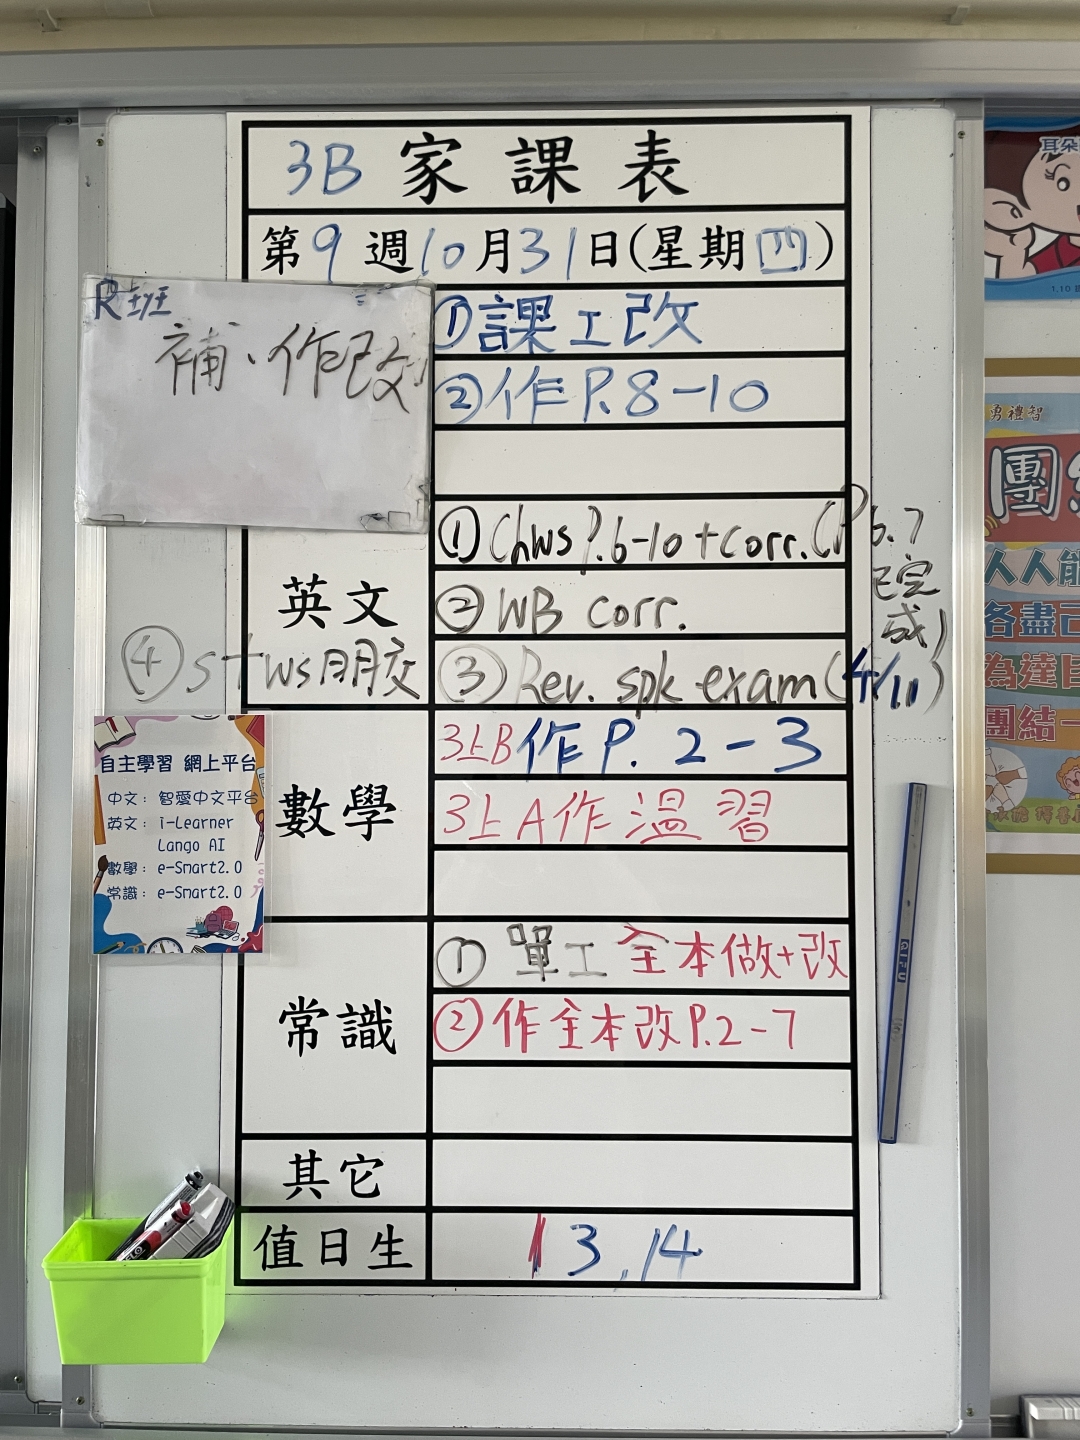 3B 家課表
第9週10月31日(星期四)
R班
補、作改
①課工改
②作P.8-10
英文
①ChWS P.6-10+corr.(P6.7
已完
成)
②WB corr.
③Rev. spk exam(4/11)
④S+WS 明交
數學
3上B作P.2-3
3上A作溫習
常識
①單工全本做+改
②作全本改P.2-7
其它
值日生
13,14
自主學習 網上平台
中文: 智愛中文平台
英文: i-Learner
Lango AI
數學: e-Smart2.0
常識: e-Smart2.0
QIFU
耳朵
1.10
勇禮智
團結
人人能
各盡己
為達目
團結一